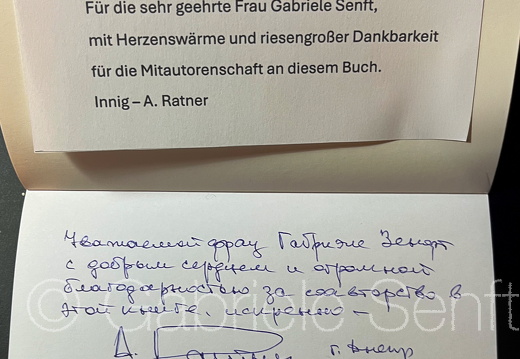 Für die sehr geehrte Frau Gabriele Senft,
mit Herzenswärme und riesengroßer Dankbarkeit
für die Mitautorenschaft an diesem Buch.
Innig – A. Ratner
Уважаемой фрау Габриэле Зенфт
с добрым сердцем и огромной
благодарностью за соавторство в
этой книге, искренно –
© Gabriele Senft
А. Ратнер г. Днепр